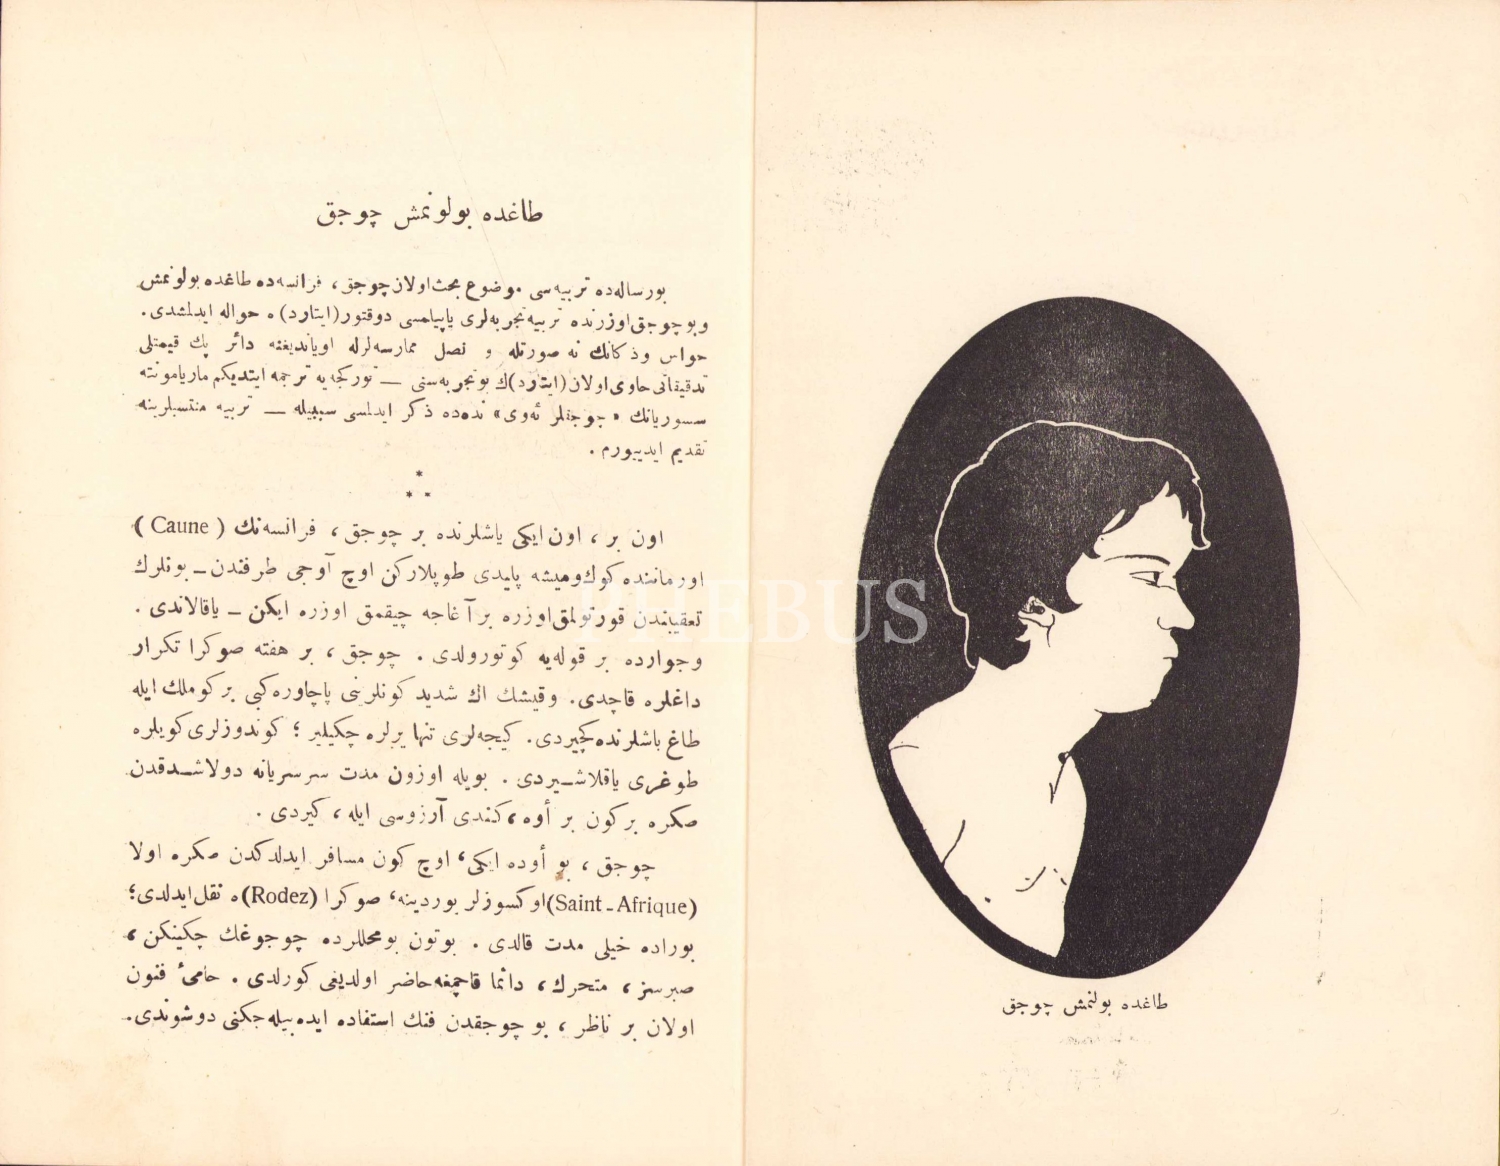 طاغده بولونمش چوجق
بورساله‌ده تربیه‌سی موضوع بحث اولان چوجق، فرانسه‌ده طاغده بولونمش
وبوچوجق اوزرنده تربیه تجربه‌لری یاپیلمسی دوقتور (ایتارد) ه حواله ایدلمشدی.
حواس وذکانك نه صورتله و نصل ممارسه‌لرله اویاندیغنه دائر پك قیمتلی
تدقیقاتی حاوی اولان (ایتارد)ك بوتجربه‌سنی — تورکجه‌یه ترجمه ایتدیکم ماریامونته
سسوریانك «چوجقلر ئه‌وی» نده‌ده ذکر ایدلمسی سببیله — تربیه منتسبلرینه
تقدیم ایدییورم.
*
* *
اون بر، اون ایکی یاشلرنده بر چوجق، فرانسه‌نك (Caune)
اورماننده كوك‌ومیشه پلیدی طوپلارکن اوچ آوجی طرفندن ـ بونلرك
تعقیبندن قورتولمق‌اوزره بر آغاجه چیقمق اوزره ایکن ـ یاقالاندی.
وجوارده بر قوله‌یه کوتورولدی. چوجق، بر هفته صوکرا تکرار
داغلره قاچدی. وقیشك اك شدید کونلرینی پاچاوره‌کبی برکوملك ایله
طاغ باشلرنده کچیردی. کیجه‌لری تنها یرلره چکیلیر؛ کوندوزلری کویلره
طوغری یاقلاشیردی. بویله اوزون مدت سرسریانه دولاشدقدن
صکره برکون بر أوه، کندی آرزوسی ایله، کیردی.
چوجق، بو أوده ایکی، اوچ کون مسافر ایدلدکدن صکره اولا
(Saint-Afrique) اوکسوزلر یوردینه، صوکرا (Rodez) ه نقل ایدلدی؛
بوراده خیلی مدت قالدی. بوتون بومحللرده چوجوغك چکینکن،
صبرسز، متحرك، دائما قاچمغه حاضر اولدیغی کورلدی. حامیٔ فنون
اولان بر ناظر، بو چوجقدن فنك استفاده ایده‌بیله‌جکنی دوشوندی.
طاغده بولنمش چوجق
PHEBUS